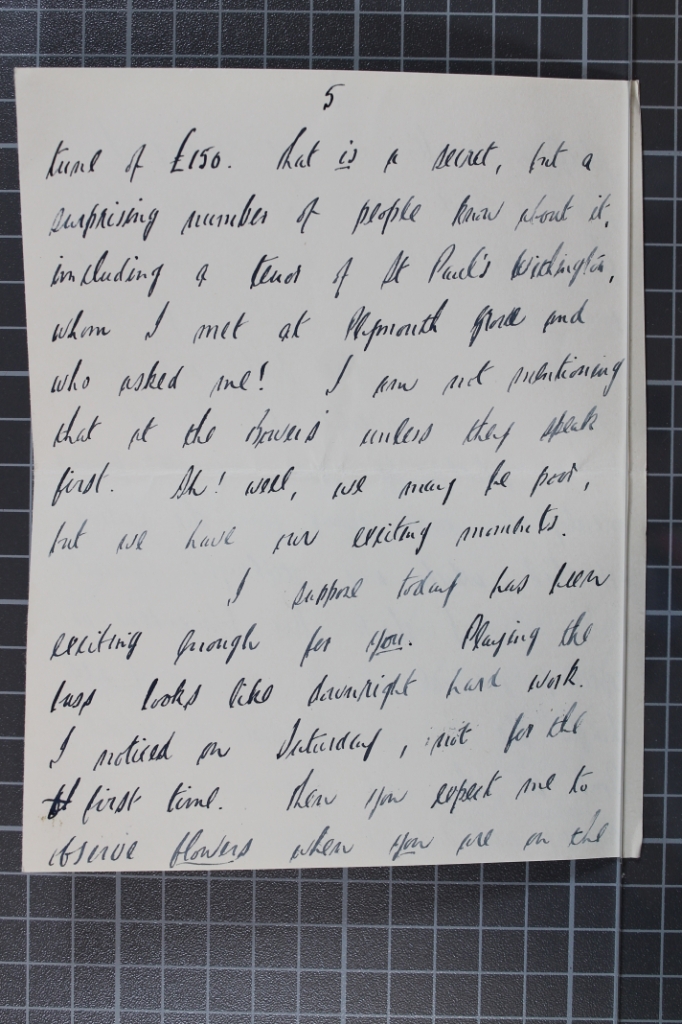 5
tune of £150. That is a secret, but a
surprising number of people know about it,
including a tenor of St Paul's Withington,
whom I met at Plymouth Grove and
who asked me! I am not mentioning
that at the Bowers' unless they speak
first. Ah! well, we may be poor,
but we have our exciting moments.
I suppose today has been
exciting enough for you. Playing the
bass looks like downright hard work.
I noticed on Saturday, not for the
first time. Then you expect me to
observe flowers when you are on the